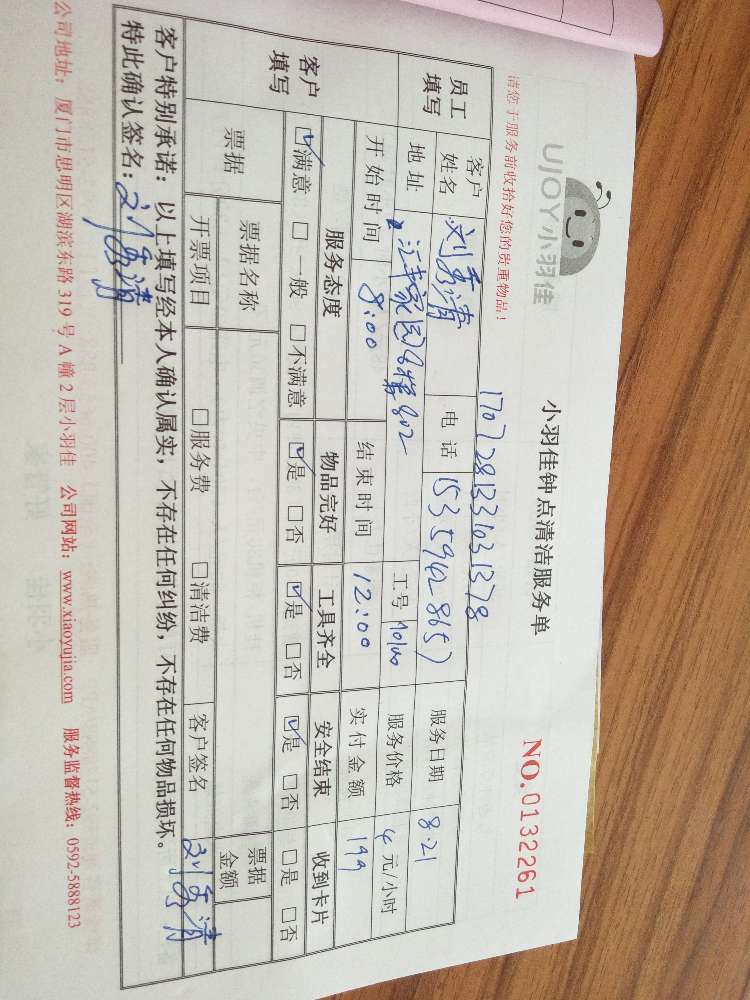 UJOY小羽佳
小羽佳钟点清洁服务单
NO.0132261
请您于服务前收拾好您的贵重物品！
1707281331031378
员工填写
客户姓名
电话
服务日期 8.21
地址
802
工号
服务价格 4 元/小时
开始时间 8:00
结束时间 12:00
实付金额 199
客户填写
服务态度 物品完好 工具齐全 安全结束 收到卡片
☑满意 □一般 □不满意 ☑是 □否 ☑是 □否 ☑是 □否 □是 □否
票据
票据名称
票据金额
开票项目 □服务费 □清洁费 客户签名
客户特别承诺：以上填写经本人确认属实，不存在任何纠纷，不存在任何物品损坏。
特此确认签名：
公司地址：厦门市思明区湖滨东路 319 号 A 幢 2 层小羽佳 公司网站：www.xiaoyujia.com 服务监督热线：0592-5888123